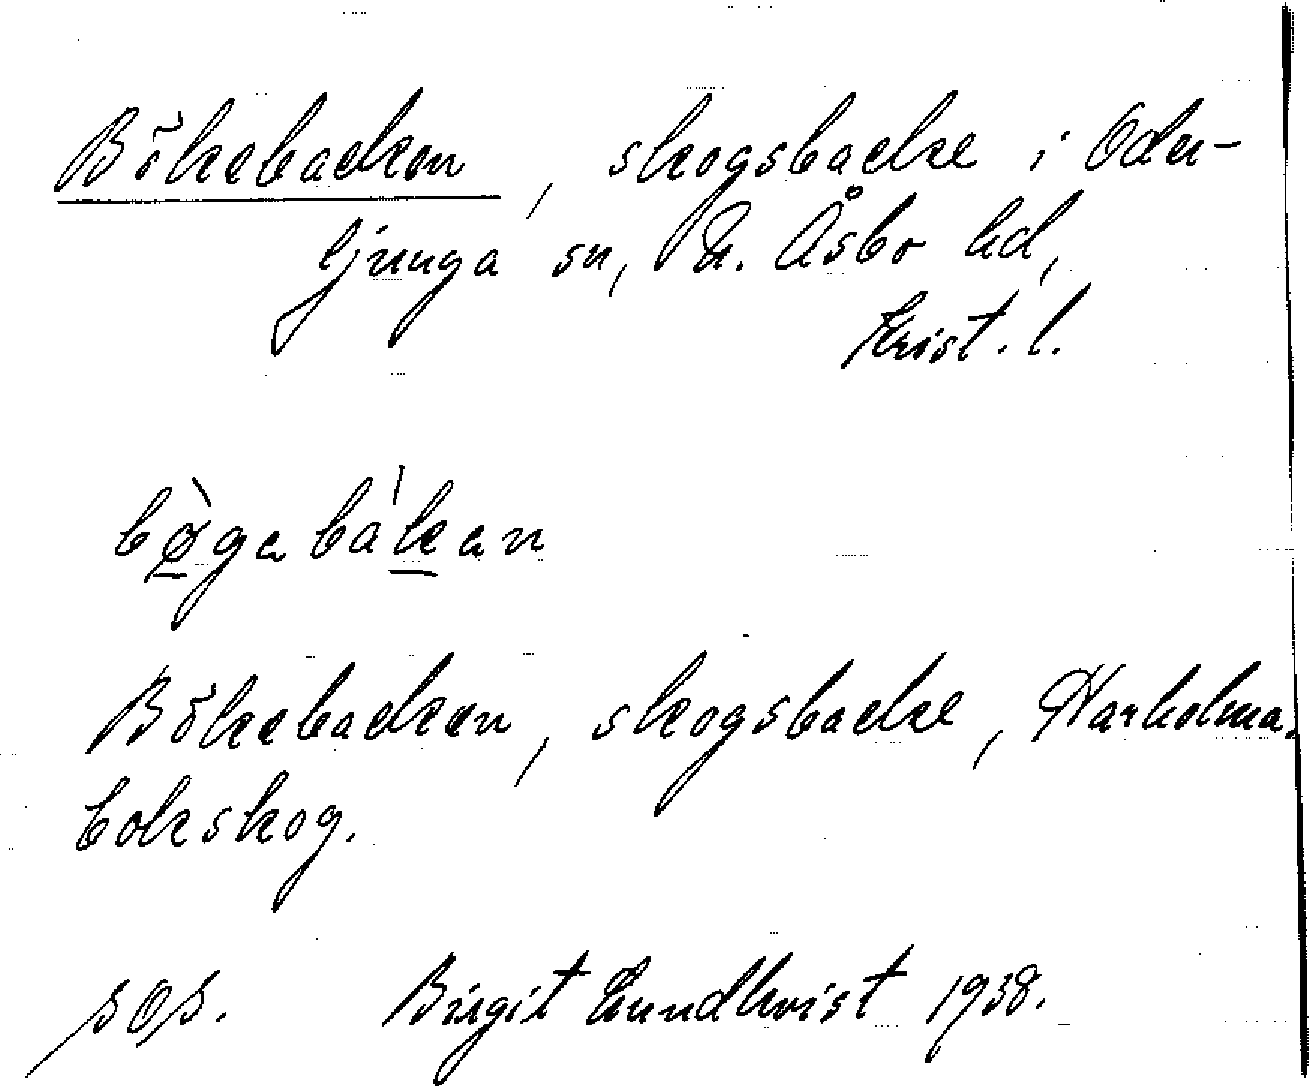 Bökebacken, skogsbacke i Oder-
ljunga sn, N. Åsbo hd,
Krist. l.
bø̀gabákan
Bökebacken, skogsbacke, Harholma.
bokskog.
SOS. Birgit Lundkvist 1938.